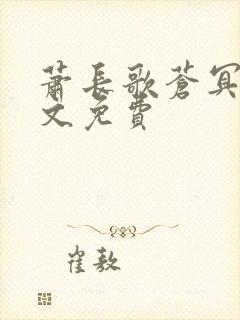 蕭長歌蒼冥
文免費
崔敖